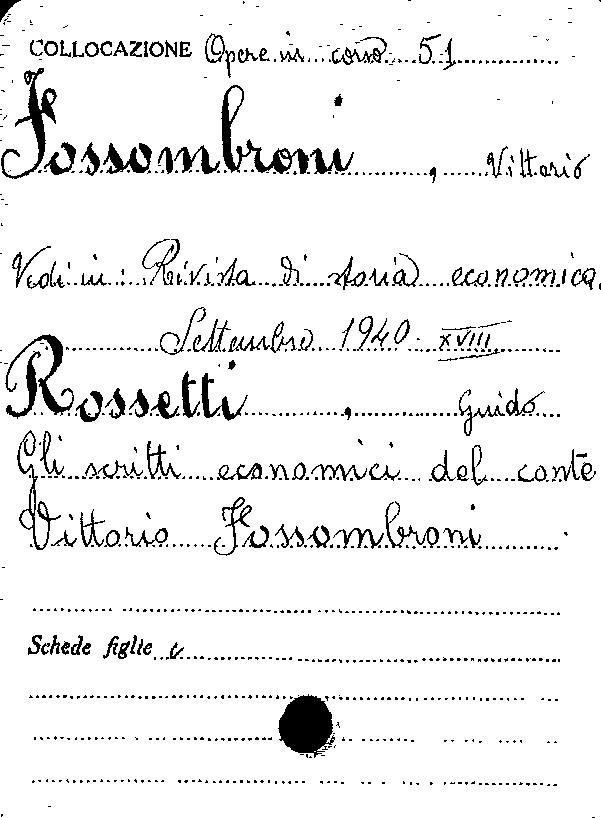 COLLOCAZIONE Opere in corso 51
Fossombroni, Vittorio
Vedi in: Rivista di storia economica.
Settembre 1940. XVIII
Rossetti, Guido
Gli scritti economici del conte
Vittorio Fossombroni.
Schede figlie